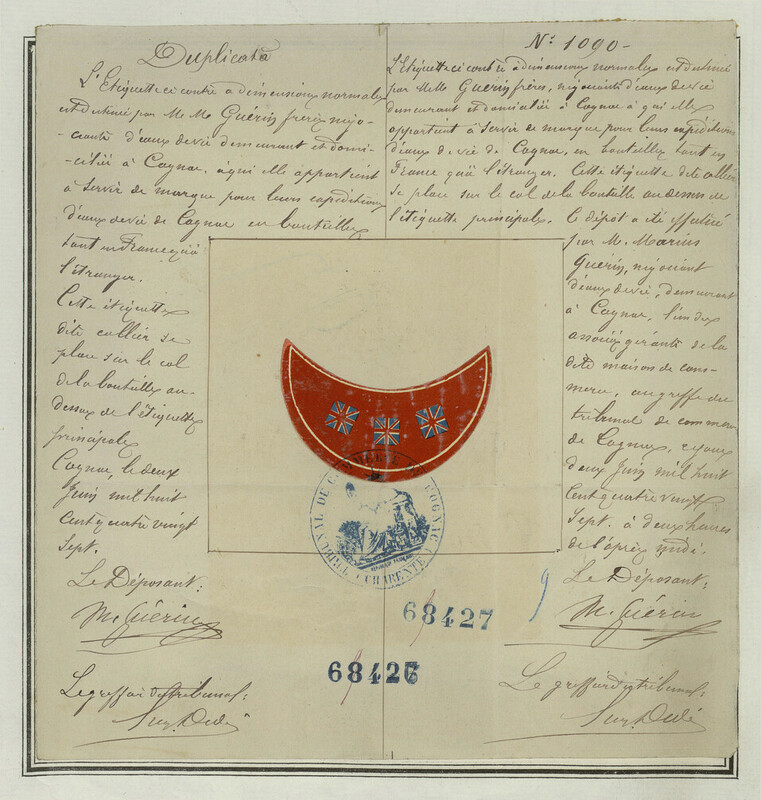 Duplicata
L'Etiquette ci contre a dimensions normales
est destiné par M. M. Guérin frères négo-
-ciants d'eaux de vie demeurant et domi-
-ciliés à Cognac, à qui elle appartient
à servir de marque pour leurs expéditions
d'eaux de vie de Cognac en bouteilles
tant en France qu'à
l'étranger.
Cette étiquette
dite collier se
place sur le col
de la bouteille au-
dessus de l'étiquette
principale
Cognac, le deux
Juin mil huit
cent quatre vingt
sept.
Le Déposant:
M. Guérin
Le greffier du tribunal:
N° 1090-
L'Etiquette ci contre a dimensions normales est destiné
par M. M. Guérin frères, négociants d'eaux de vie
demeurant et domiciliés à Cognac à qui elle
appartient à servir de marque pour leurs expéditions
d'eaux de vie de Cognac, en bouteilles tant en
France qu'à l'étranger. Cette étiquette dite collier
se place sur le col de la bouteille au dessus de
l'étiquette principale. Ce dépôt a été effectué
par M. Marius
Guérin, négociant
d'eaux de vie, demeurant
à Cognac, l'un des
associés gérants de la
dite maison de com-
merce, au greffe du
tribunal de commerce
de Cognac, ce jour
deux Juin mil huit
cent quatre vingt
sept. à deux heures
de l'après midi.
Le Déposant:
M. Guérin
Le greffier du tribunal:
TRIBUNAL DE COMMERCE DE COGNAC
(CHARENTE)
9
68427
68426